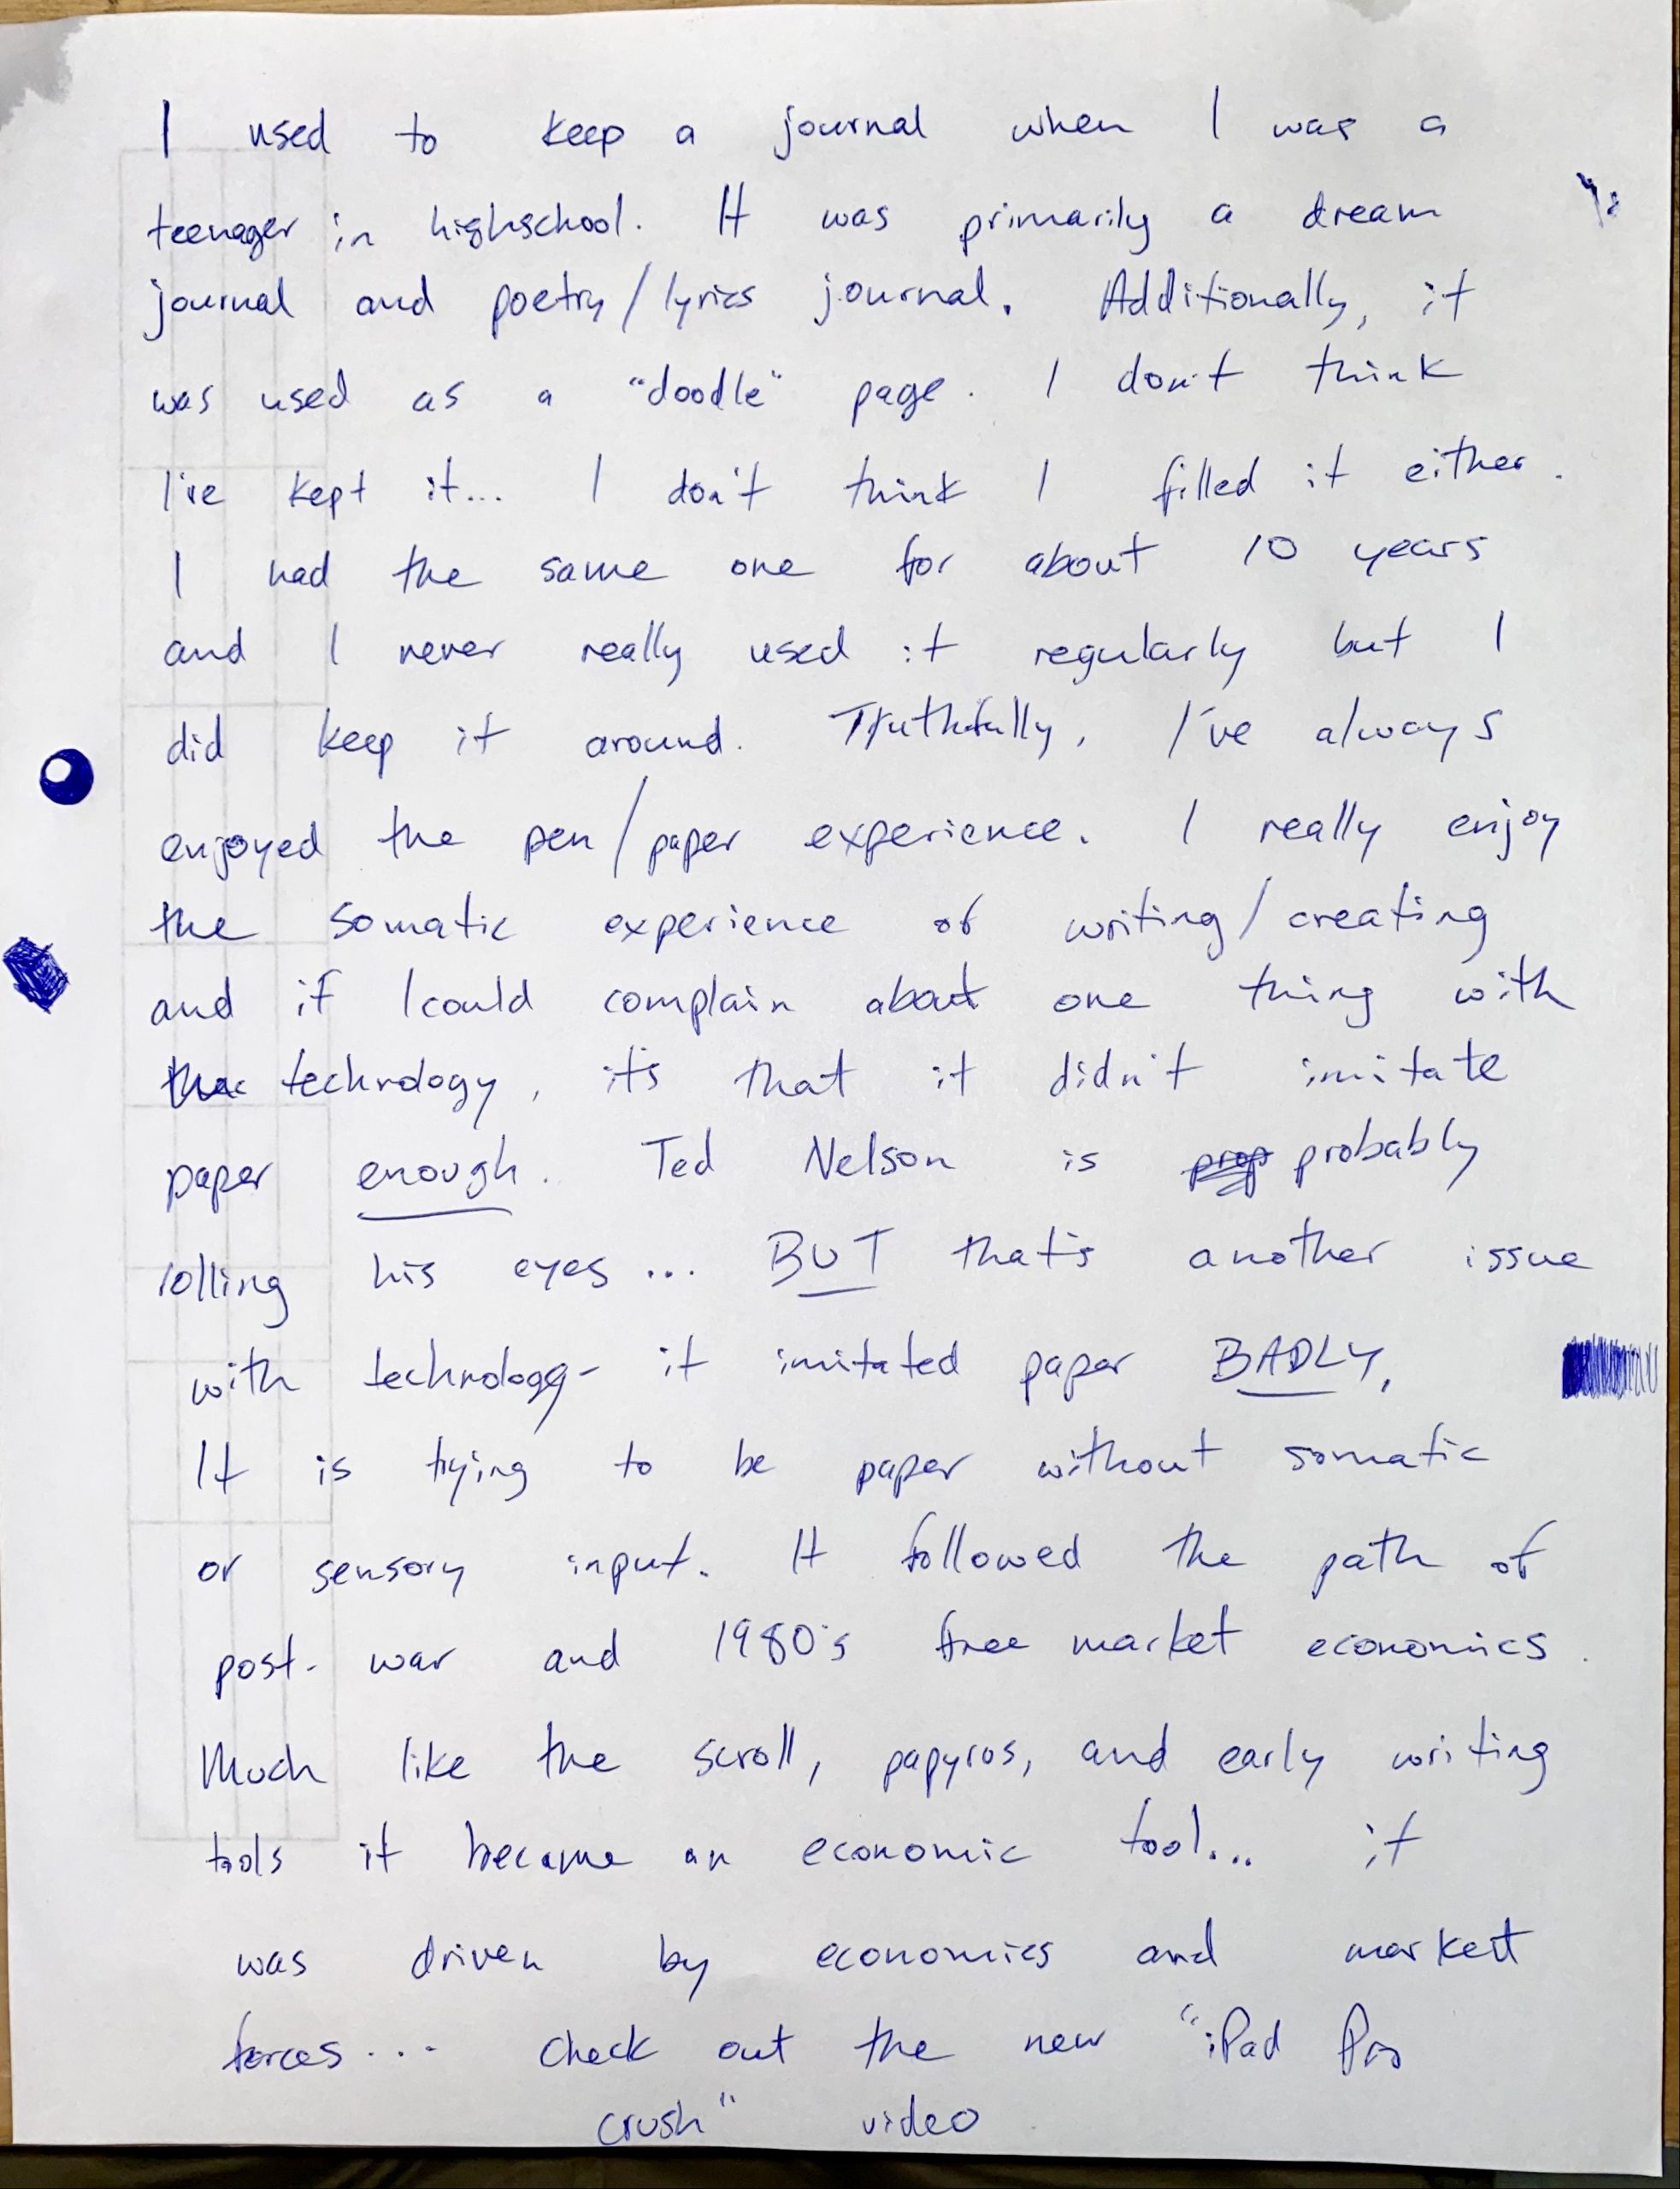 I used to keep a journal when I was a
teenager in highschool. It was primarily a dream
journal and poetry/lyrics journal. Additionally, it
was used as a "doodle" page. I don't think
I've kept it... I don't think I filled it either.
I had the same one for about 10 years
and I never really used it regularly but I
did keep it around. Truthfully, I've always
enjoyed the pen/paper experience. I really enjoy
the somatic experience of writing/creating
and if I could complain about one thing with
technology, it's that it didn't imitate
paper enough. Ted Nelson is prop probably
rolling his eyes... BUT that's another issue
with technology- it imitated paper BADLY.
It is trying to be paper without somatic
or sensory input. It followed the path of
post-war and 1980's free market economics.
Much like the scroll, papyros, and early writing
tools it became an economic tool... it
was driven by economics and market
forces... check out the new "iPad Pro
crush" video